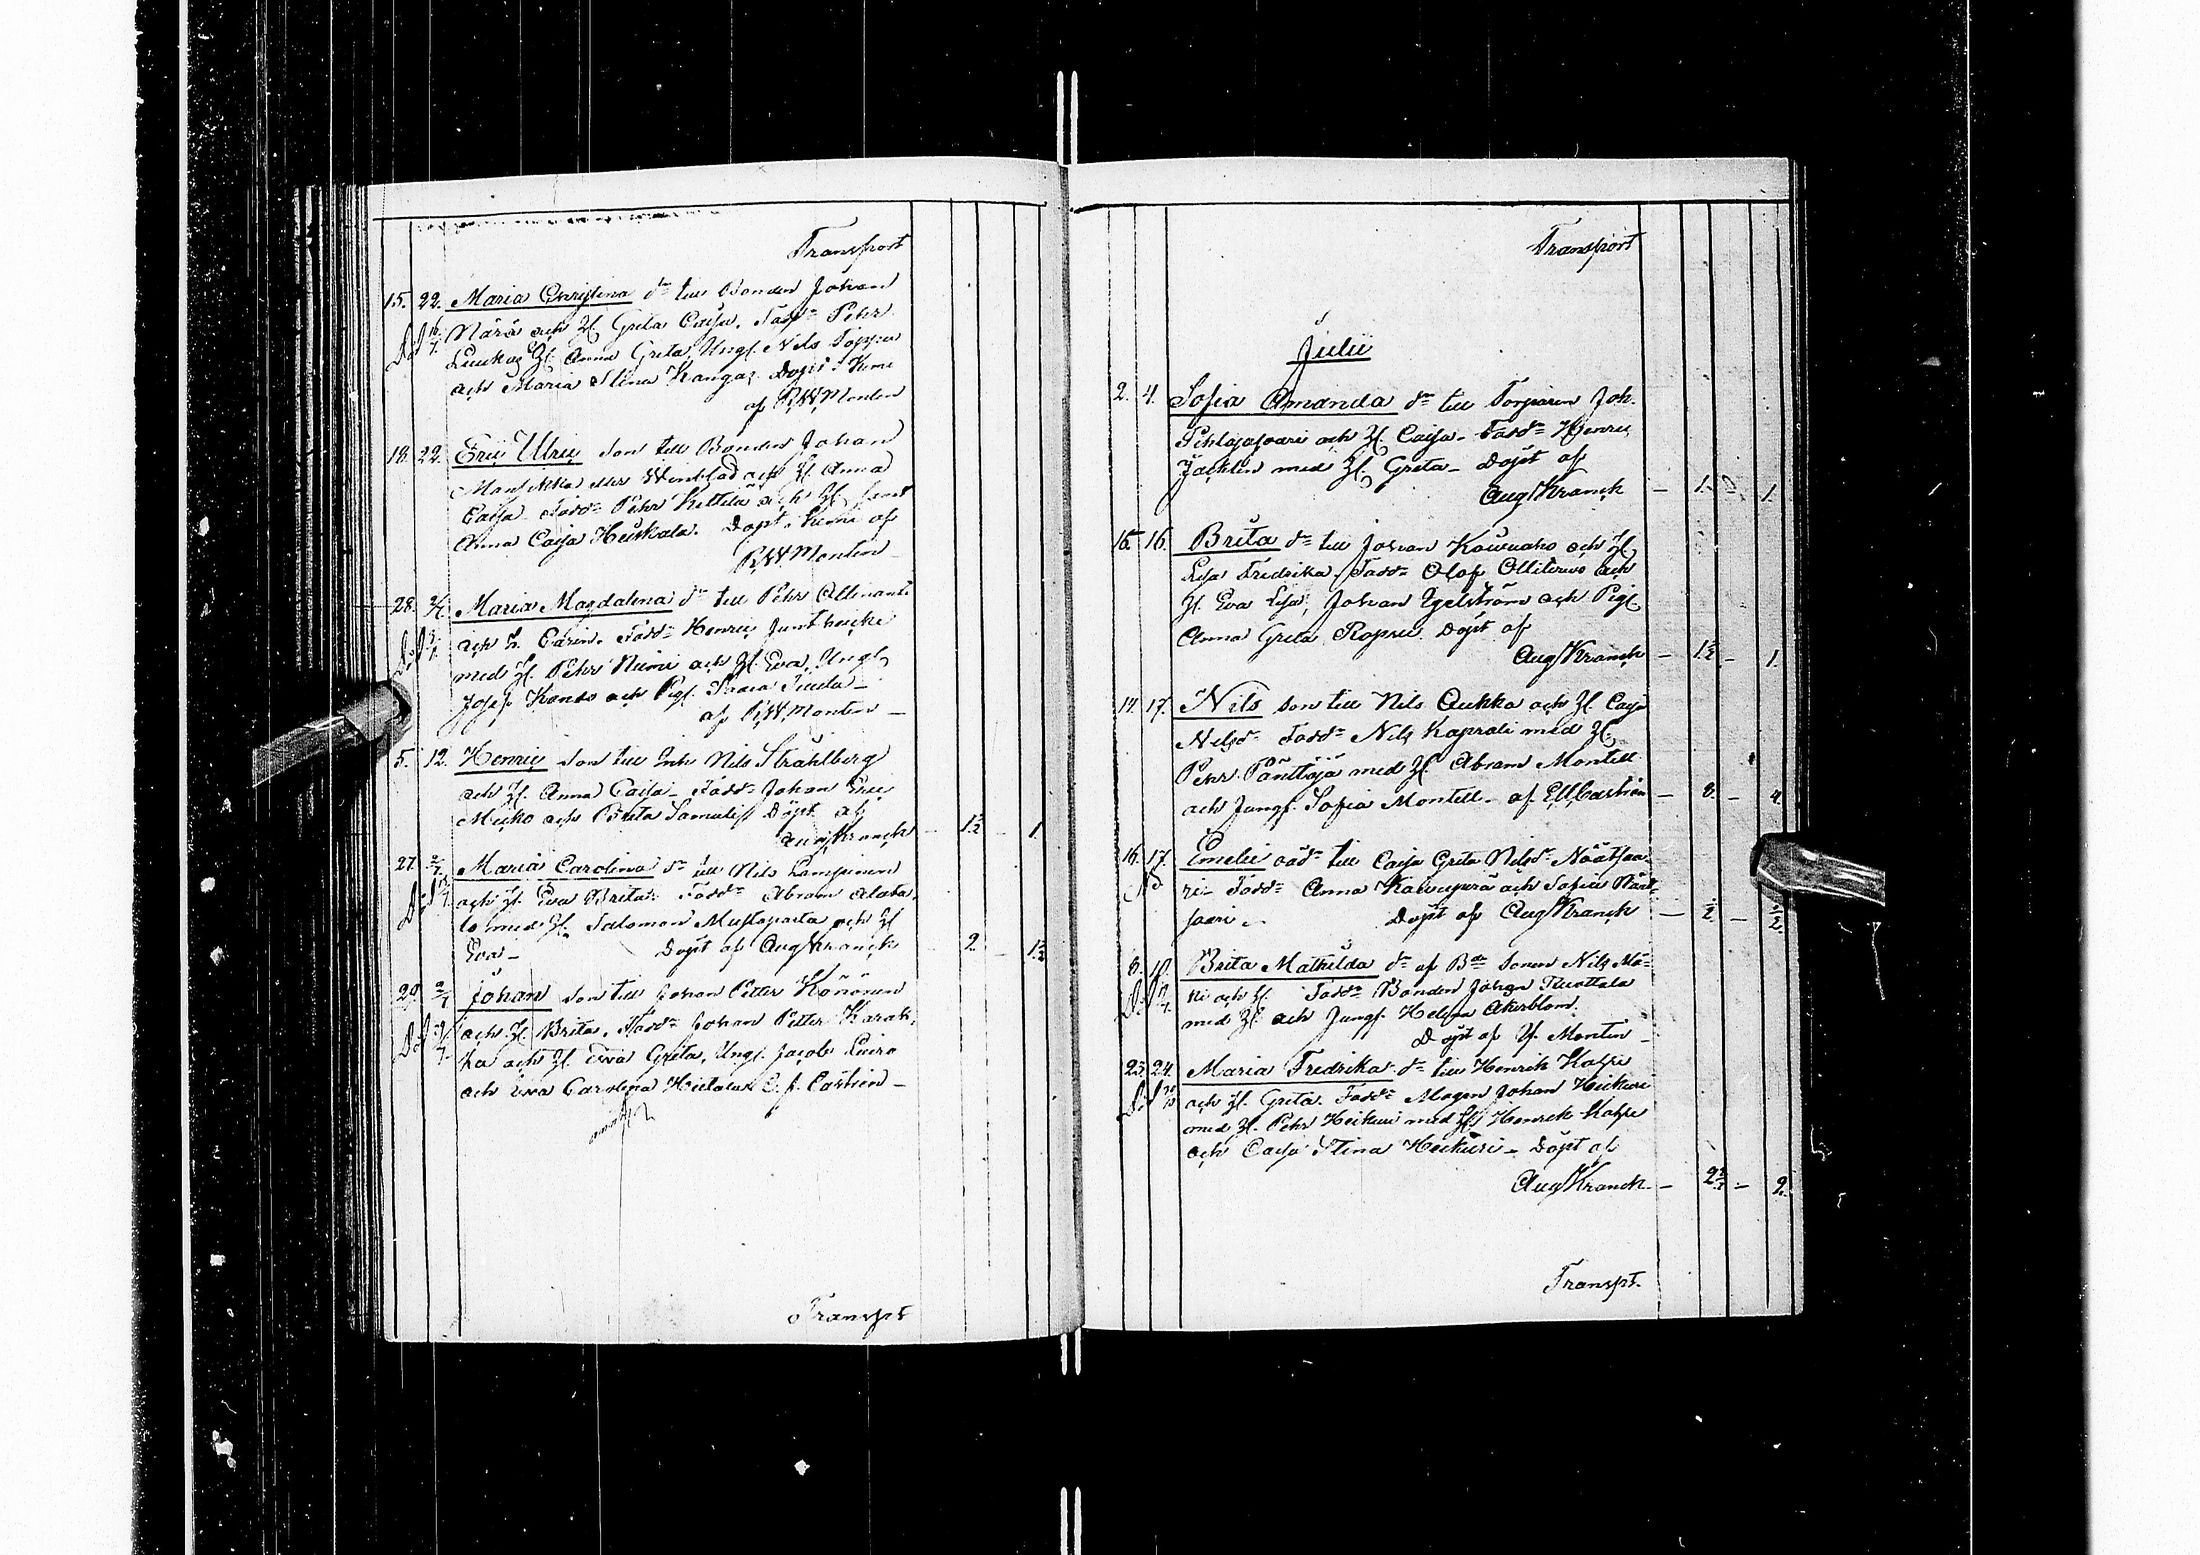 Transport
15. 22. Maria Christina dr till Bonden Johan
Död 16/7. Närä och H. Greta Caisa. Fadd: Pehr
Luukas H. Anna Greta, Ungl. Nils Toppu
och Maria Stina Kangas. Döpt i Kemi
af P.W. Montin
18. 22. Eric Ulric son till Bonden Johan
eller Winblad och H. Anna
Caisa. Fadd: Pehr Kittilä och H. samt
Anna Caisa Heiskala. Döpt i Kemi af
P.W. Montin
28. 2/7. Maria Magdalena dr till Pehr Allinantti
Död och H. Carin. Fadd: Henric Junt
med H. Pehr Niemi och H. Eva, Ungl.
Josef Konto och Pig.
af P.W. Montin —
5. 12. Henric son till Inh Nils Stråhlberg
och H. Anna Caisa. Fadd: Johan Eric
Micko och Brita Samulis Döpt af
Aug Kranck — 1½ — 1
27. 2/7. Maria Carolina dr till Nils Lampinen
Död och H. Eva Brita. Fadd: Abram Alata-
lo med H. Salomon Mustaparta och H.
Eva — Döpt af Aug Kranck — 2. — 1½
29. 2/7 Johan son till Johan Petter Könönen
Död och H. Brita. Fadd: Johan Petter Karah-
ka och H. Ewa Greta, Ungl. Jacob Luiro
och Ewa Carolina Hietala E. f. Castrén —
Transpt
Transport
Julii
2. 4. Sofia Amanda dr till Torparen Joh.
Pihlajasaari och H. Caisa. Fadd: Henric
Jäcklin med H. Greta — Döpt af
Aug Kranck — 1. — 1.
15. 16. Brita dr till Johan Kowuaho och H.
Lisa Fredrika. Fadd: Olof Ollitervo och
H. Eva Lisa, Johan Egelström och Pig.
Anna Greta Ropsu. Döpt af
Aug Kranck — 1½ — 1.
14. 17. Nils son till Nils Aukka och H. Caisa
Nilsdr Fadd: Nils Kaprali med H.
Pehr Pänttäjä med H. Abram Montell
och Jungf. Sofia Montell — af Ell Castrén — 8. — 4.
16. 17. Emelie oädr till Caisa Greta Nilsdr Näätsaa-
ri — Fadd: Anna och Sofia Näät-
saari. Döpt af Aug Kranck — ½ — ½
8. 10. Brita Mathilda dr af Bde Sonen Nils Mä-
Död ki och H. Fadd: Bonden Johan Tuuttala
med H. och Jungf. Helena Åkerblom.
Döpt af Montin —
23. 24. Maria Fredrika dr till Henrik Kaspi
Död och H. Greta. Fadd: Magen Johan Heikuri
med H. Pehr Heikuri med H. Henrik Kaspi
och Caisa Stina Heikuri — Döpt af
Aug Kranck — 2½ — 2.
Transpt.